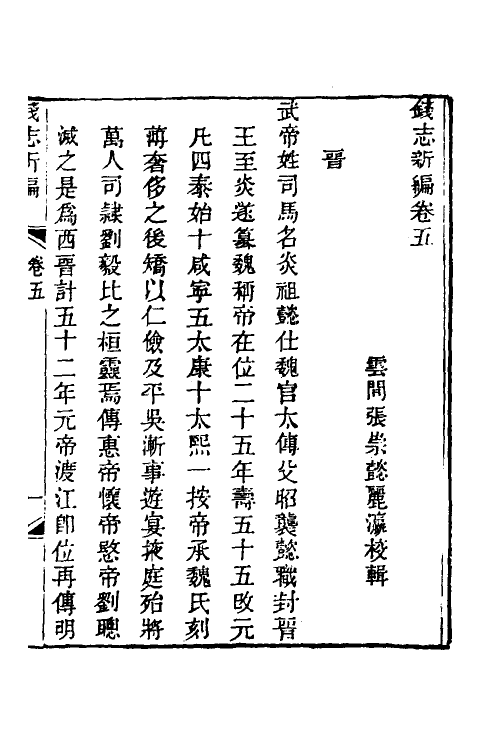 錢志新編卷五
雲間張崇懿麗瀛校輯
晉
武帝姓司馬名炎祖懿仕魏官太傅父昭襲懿職封晉
王至炎遂篡魏稱帝在位二十五年壽五十五改元
凡四泰始十咸寧五太康十太熙一按帝承魏氏刻
薄奢侈之後矯以仁儉及平吳漸事遊宴掖庭殆將
萬人司隸劉毅比之桓靈焉傳惠帝懷帝愍帝劉聰
滅之是爲西晉計五十二年元帝渡江卽位再傳明
錢志新編
卷五
一